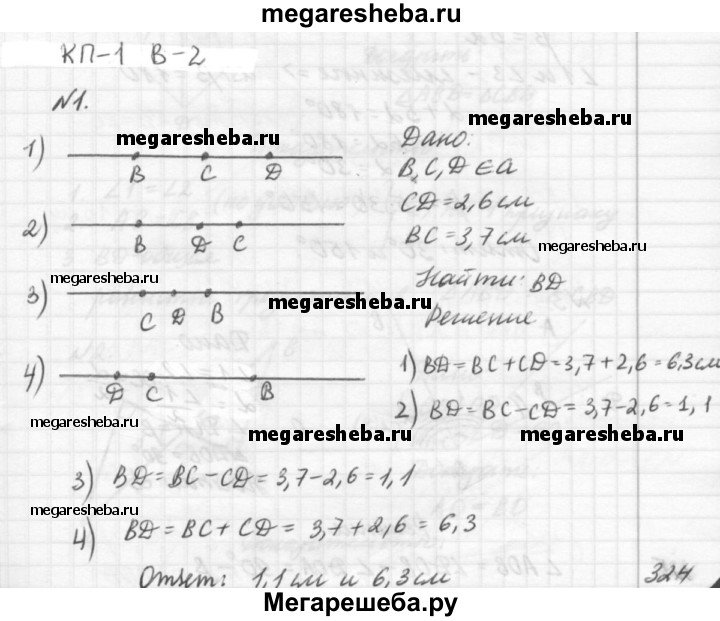 megaresheba.ru
КП-1 В-2
№1.
megaresheba.ru
megaresheba.ru
1)
B C D
Дано:
B, C, D ∈ a
CD = 2,6 см
2)
B D C
BC = 3,7 см
megaresheba.ru
megaresheba.ru
Найти: BD
3)
C D B
megaresheba.ru
Решение
4)
D C B
1) BD = BC + CD = 3,7 + 2,6 = 6,3 см
2) BD = BC - CD = 3,7 - 2,6 = 1,1
megaresheba.ru
megaresheba.ru
megaresheba.ru
3) BD = BC - CD = 3,7 - 2,6 = 1,1
megaresheba.ru
4) BD = BC + CD = 3,7 + 2,6 = 6,3
Ответ: 1,1 см и 6,3 см
324
Мегарешеба.ру